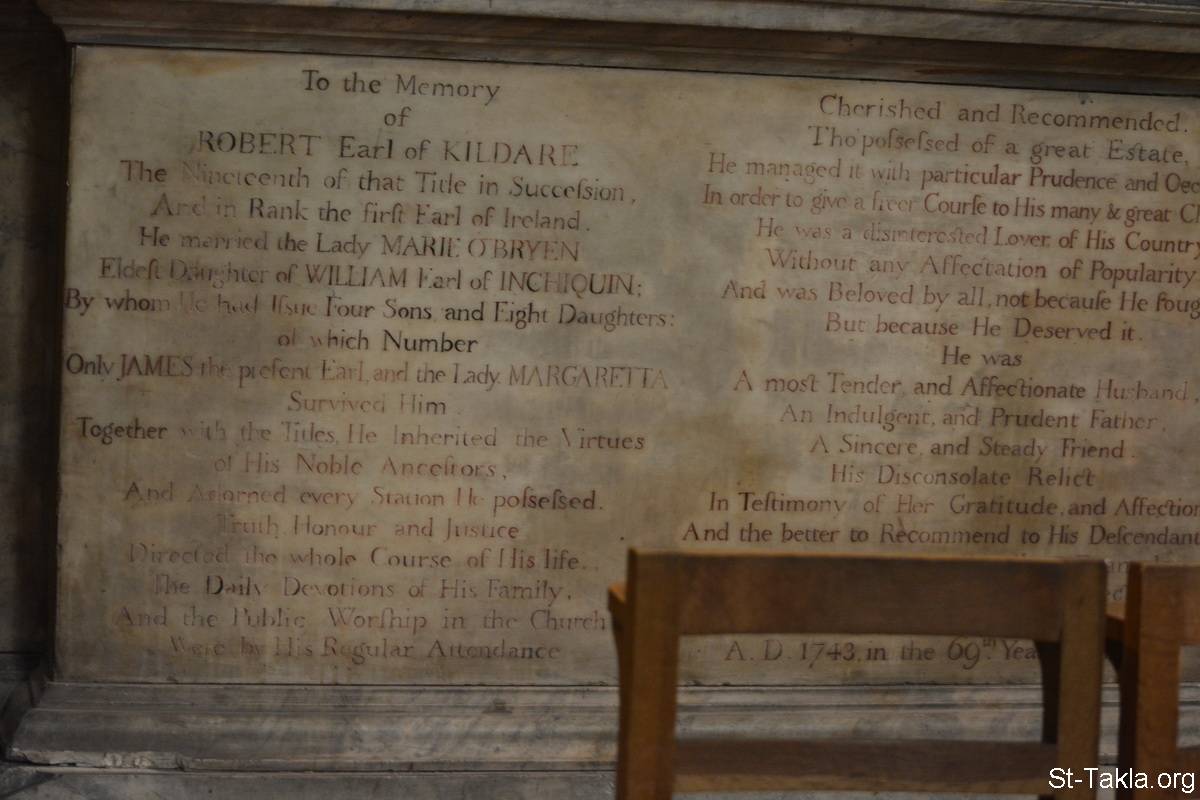 To the Memory
of
ROBERT Earl of KILDARE
The Nineteenth of that Title in Succeſsion,
And in Rank the firſt Earl of Ireland.
He married the Lady MARIE O'BRYEN
Eldeſt Daughter of WILLIAM Earl of INCHIQUIN;
By whom He had Iſsue Four Sons and Eight Daughters:
of which Number
Only JAMES the preſent Earl, and the Lady MARGARETTA
Survived Him.
Together with the Titles, He Inherited the Virtues
of His Noble Anceſtors,
And Adorned every Station He poſseſsed.
Truth, Honour and Justice
Directed the whole Course of His life.
The Daily Devotions of His Family,
And the Public Worſhip in the Church
Were by His Regular Attendance
Cherished and Recommended.
Tho poſseſsed of a great Estate,
He managed it with particular Prudence and Oec
In order to give a freer Courſe to His many & great C
He was a disinterested Lover of His Country
Without any Affectation of Popularity
And was Beloved by all, not becauſe He ſoug
But because He Deserved it.
He was
A most Tender, and Affectionate Husband,
An Indulgent, and Prudent Father,
A Sincere, and Steady Friend.
His Disconsolate Relict
In Teſtimony of Her Gratitude, and Affection
And the better to Recommend to His Deſcendant
A.D. 1743, in the 69th Yea
St-Takla.org